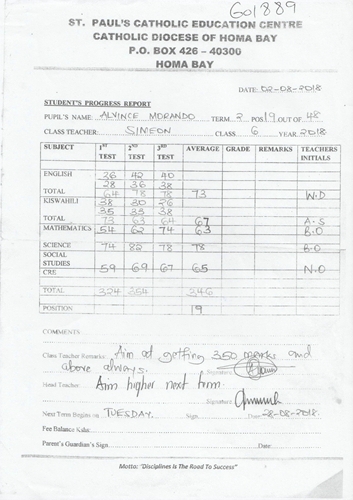 G01889
ST. PAUL'S CATHOLIC EDUCATION CENTRE
CATHOLIC DIOCESE OF HOMA BAY
P.O. BOX 426 – 40300
HOMA BAY
DATE: 02-08-2018
STUDENT'S PROGRESS REPORT
PUPIL'S NAME: ALVINCE MORANDO TERM: 2 POS 19 OUT OF 48
CLASS TEACHER: SIMEON CLASS 6 YEAR 2018
SUBJECT 1ST TEST 2ND TEST 3RD TEST AVERAGE GRADE REMARKS TEACHERS INITIALS
ENGLISH 36 42 40
28 36 38
TOTAL 64 78 78 73 W.D
KISWAHILI 38 30 26
35 33 38
TOTAL 73 63 64 67 A.S
MATHEMATICS 54 62 74 63 B.O
SCIENCE 74 82 78 78 B.O
SOCIAL
STUDIES
CRE 59 69 67 65 N.O
TOTAL 324 354 346
POSITION 19
COMMENTS
Class Teacher Remarks: Aim at getting 350 marks and
above always. Signature
Head Teacher: Aim higher next term.
Signature
Next Term Begins on TUESDAY. Sign Date 28-08-2018.
Fee Balance Kshs:
Parent's Guardian's Sign Date:
Motto: "Disciplines Is The Road To Success"